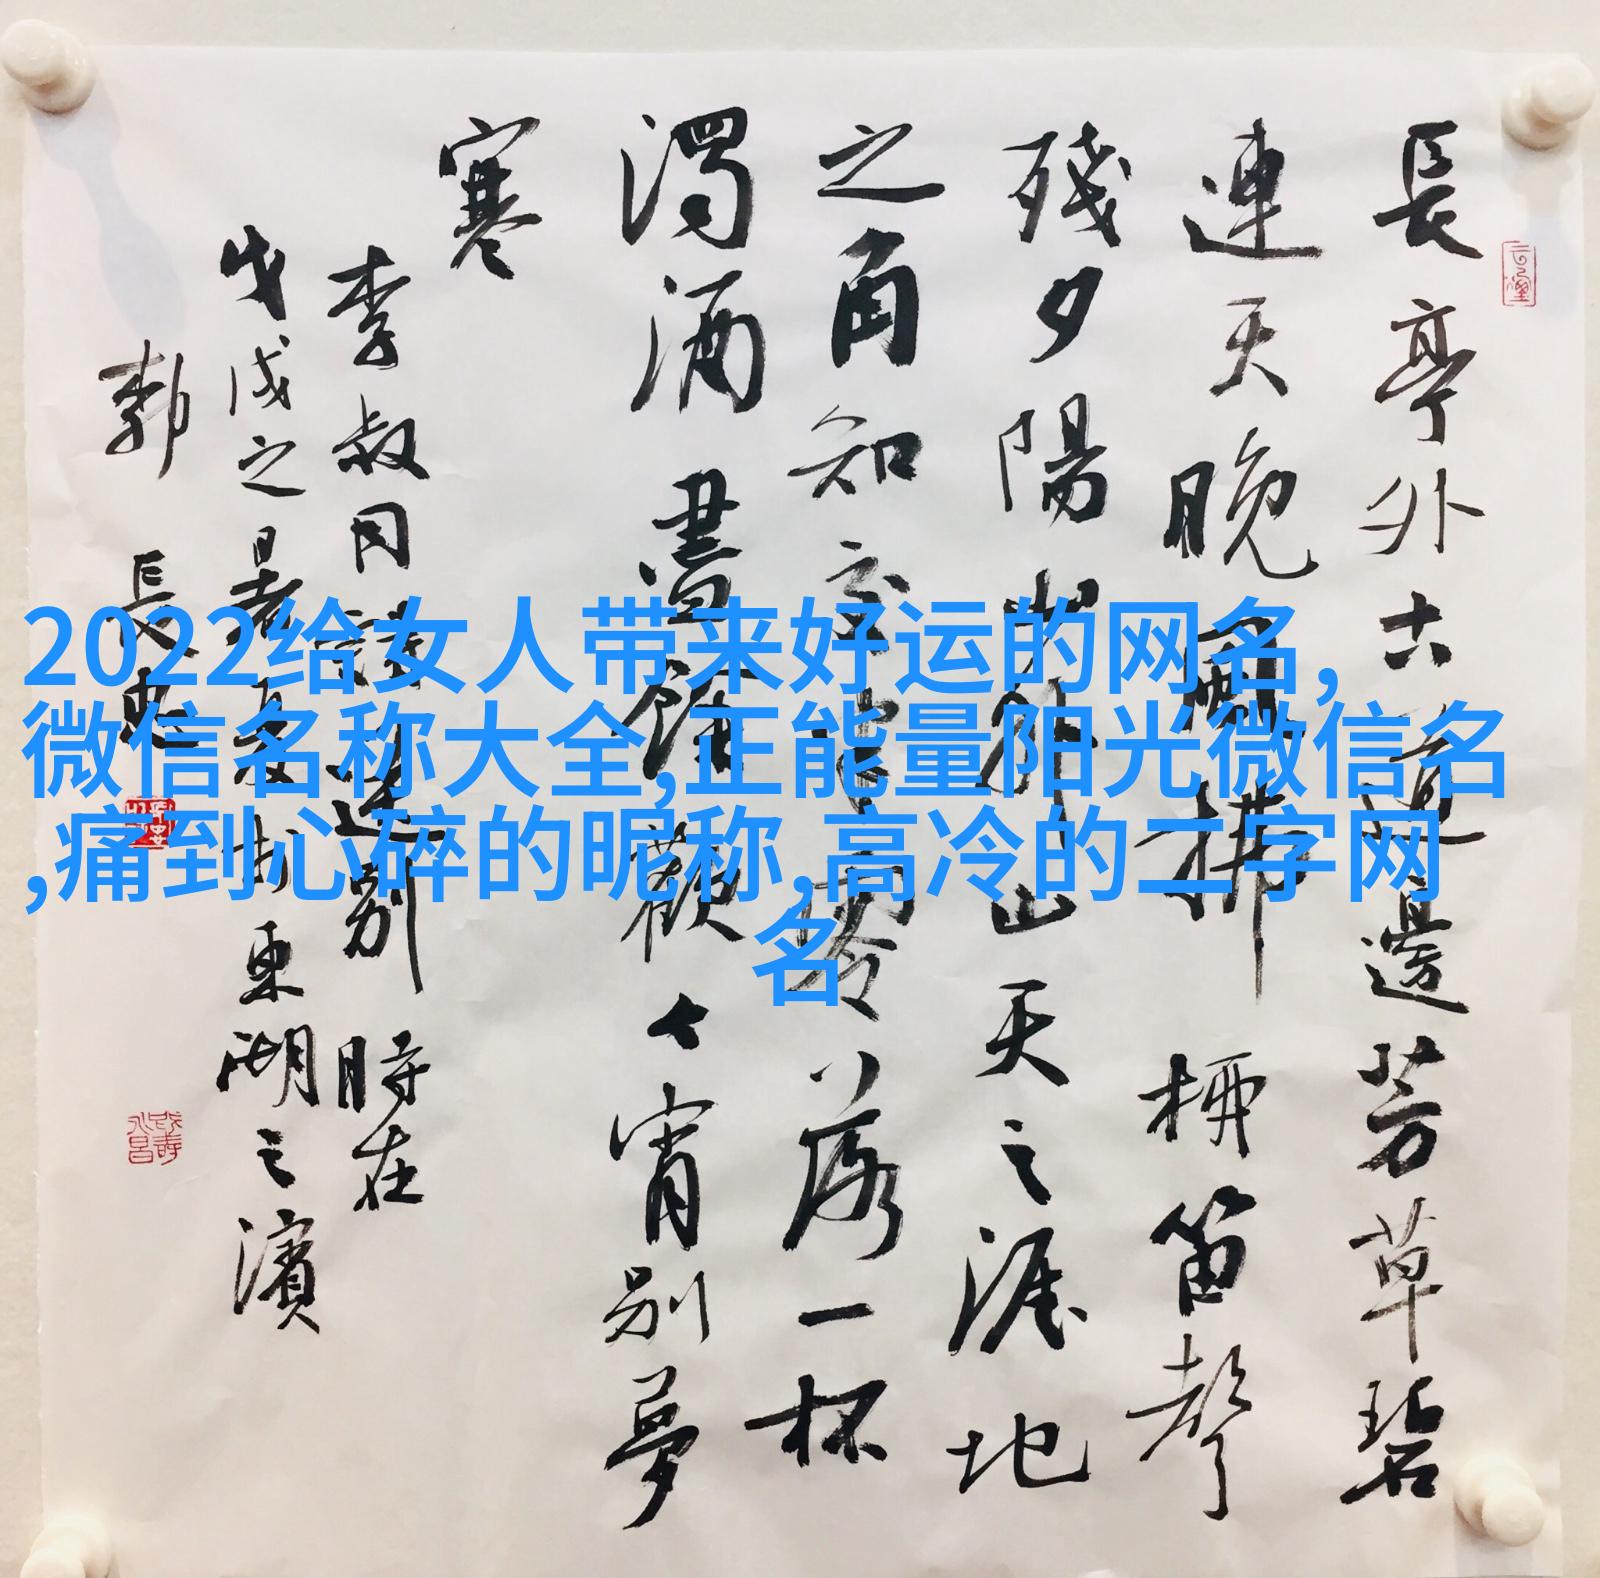 長亭外古道邊芳草碧
連天晚風拂柳笛聲
殘夕陽山外山天之涯地
之角知交半零落一杯
濁酒盡餘歡今宵別夢
寒
李叔同詩送別 時在
戊戌之暑夏於東湖之濱
長
2022给女人带来好运的网名,
微信名称大全,正能量阳光微信名
,痛到心碎的昵称,高冷的二字网
名